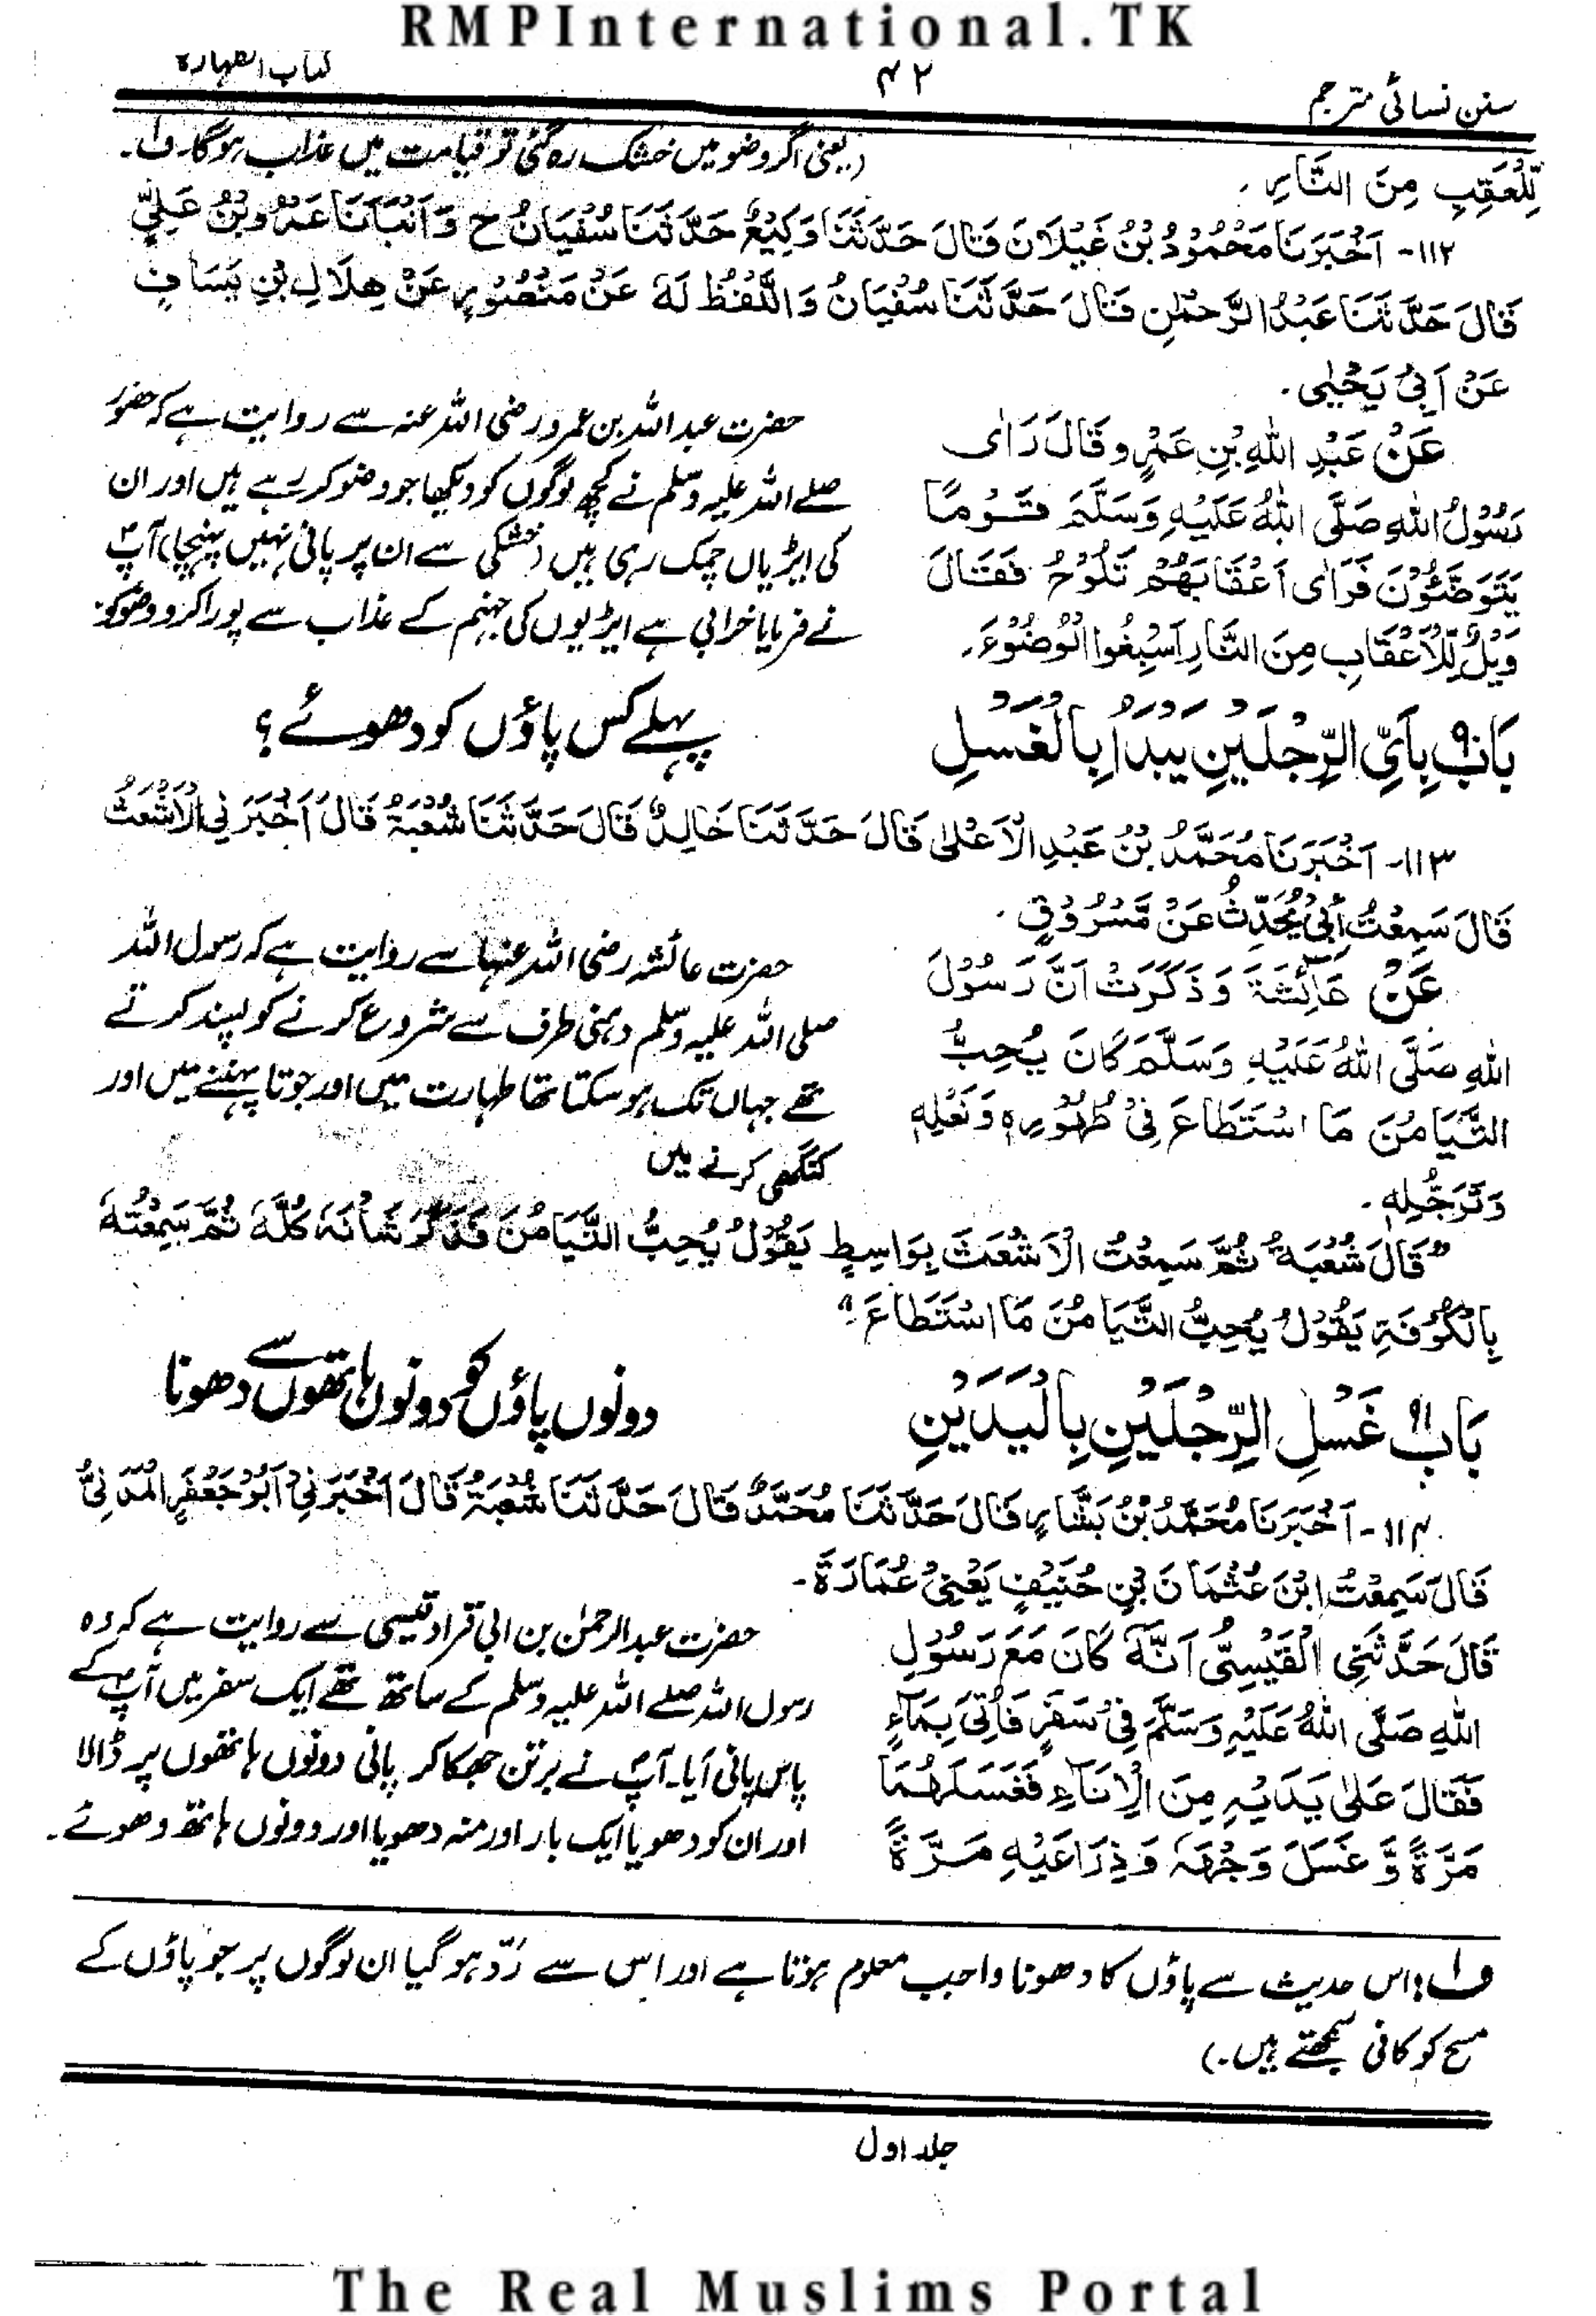 RMPInternational.TK
سنن نسائی مترجم
۴۲
کتاب الطہارۃ
لِّلْعَقِبِ مِنَ النَّارِ۔
(یعنی اگر وضو میں خشک رہ گئی تو قیامت میں عذاب ہوگا۔ ف۱۔
۱۱۲- اَخْبَرَنَا مَحْمُوْدُ بْنُ غَيْلَانَ قَالَ حَدَّثَنَا وَكِيْعٌ حَدَّثَنَا سُفْيَانُ ح وَاَنْبَاَنَا عَمْرُو بْنُ عَلِيٍّ
قَالَ حَدَّثَنَا عَبْدُ الرَّحْمٰنِ قَالَ حَدَّثَنَا سُفْيَانُ وَاللَّفْظُ لَهٗ عَنْ مَنْصُوْرٍ عَنْ هِلَالِ بْنِ يَسَافٍ
عَنْ اَبِيْ يَحْيٰى۔
عَنْ عَبْدِ اللهِ بْنِ عَمْرٍو قَالَ رَاٰى
رَسُوْلُ اللهِ صَلَّى اللهُ عَلَيْهِ وَسَلَّمَ قَوْمًا
يَتَوَضَّئُوْنَ فَرَاٰى اَعْقَابَهُمْ تَلُوْحُ فَقَالَ
وَيْلٌ لِّلْاَعْقَابِ مِنَ النَّارِ اَسْبِغُوا الْوُضُوْءَ۔
حضرت عبد اللہ بن عمرو رضی اللہ عنہ سے روایت ہے کہ حضور
صلے اللہ علیہ وسلم نے کچھ لوگوں کو دیکھا جو وضو کر رہے ہیں اور ان
کی ایڑیاں چمک رہی ہیں (خشکی سے ان پر پانی نہیں پہنچا) آپؐ
نے فرمایا خرابی ہے ایڑیوں کی جہنم کے عذاب سے پورا کرو وضو کو۔
بَابٌ۹۰ بِاَيِّ الرِّجْلَيْنِ يَبْدَاُ بِالْغَسْلِ
پہلے کس پاؤں کو دھوئے؟
۱۱۳- اَخْبَرَنَا مُحَمَّدُ بْنُ عَبْدِ الْاَعْلٰى قَالَ حَدَّثَنَا خَالِدٌ قَالَ حَدَّثَنَا شُعْبَةُ قَالَ اَخْبَرَنِي الْاَشْعَثُ
قَالَ سَمِعْتُ اَبِيْ يُحَدِّثُ عَنْ مَّسْرُوْقٍ۔
عَنْ عَائِشَةَ وَذَكَرَتْ اَنَّ رَسُوْلَ
اللهِ صَلَّى اللهُ عَلَيْهِ وَسَلَّمَ كَانَ يُحِبُّ
التَّيَامُنَ مَا اسْتَطَاعَ فِيْ طُهُوْرِهٖ وَنَعْلِهٖ
وَتَرَجُّلِهٖ۔
حضرت عائشہ رضی اللہ عنہا سے روایت ہے کہ رسول اللہ
صلی اللہ علیہ وسلم دہنی طرف سے شروع کرنے کو پسند کرتے
تھے جہاں تک ہو سکتا تھا طہارت میں اور جوتا پہننے میں اور
کنگھی کرنے میں
”قَالَ شُعْبَةُ ثُمَّ سَمِعْتُ الْاَشْعَثَ بِوَاسِطٍ يَقُوْلُ يُحِبُّ التَّيَامُنَ فَذَكَرَ شَاْنَهٗ كُلَّهٗ ثُمَّ سَمِعْتُهٗ
بِالْكُوْفَةِ يَقُوْلُ يُحِبُّ التَّيَامُنَ مَا اسْتَطَاعَ“
بَابٌ۹۱ غَسْلِ الرِّجْلَيْنِ بِالْيَدَيْنِ
دونوں پاؤں کو دونوں ہاتھوں سے دھونا
۱۱۴- اَخْبَرَنَا مُحَمَّدُ بْنُ بَشَّارٍ قَالَ حَدَّثَنَا مُحَمَّدٌ قَالَ حَدَّثَنَا شُعْبَةُ قَالَ اَخْبَرَنِيْ اَبُوْ جَعْفَرٍ الْمَدَنِيُّ
قَالَ سَمِعْتُ ابْنَ عُثْمَانَ بْنِ حُنَيْفٍ يَعْنِيْ عُمَارَةَ۔
قَالَ حَدَّثَنِي الْقَيْسِيُّ اَنَّهٗ كَانَ مَعَ رَسُوْلِ
اللهِ صَلَّى اللهُ عَلَيْهِ وَسَلَّمَ فِيْ سَفَرٍ فَاُتِيَ بِمَآءٍ
فَقَالَ عَلٰى يَدَيْهِ مِنَ الْاِنَآءِ فَغَسَلَهُمَا
مَرَّةً وَّ غَسَلَ وَجْهَهٗ وَذِرَاعَيْهِ مَرَّةً
حضرت عبدالرحمٰن بن ابی قراد قیسی سے روایت ہے کہ وہ
رسول اللہ صلے اللہ علیہ وسلم کے ساتھ تھے ایک سفر میں آپؐ کے
پاس پانی آیا۔ آپؐ نے برتن جھکا کر پانی دونوں ہاتھوں پر ڈالا
اور ان کو دھویا ایک بار اور منہ دھویا اور دونوں ہاتھ دھوئے۔
ف۱: اس حدیث سے پاؤں کا دھونا واجب معلوم ہوتا ہے اور اس سے رَدّ ہو گیا ان لوگوں پر جو پاؤں کے
مسح کو کافی سمجھتے ہیں۔)
جلد اول
The Real Muslims Portal